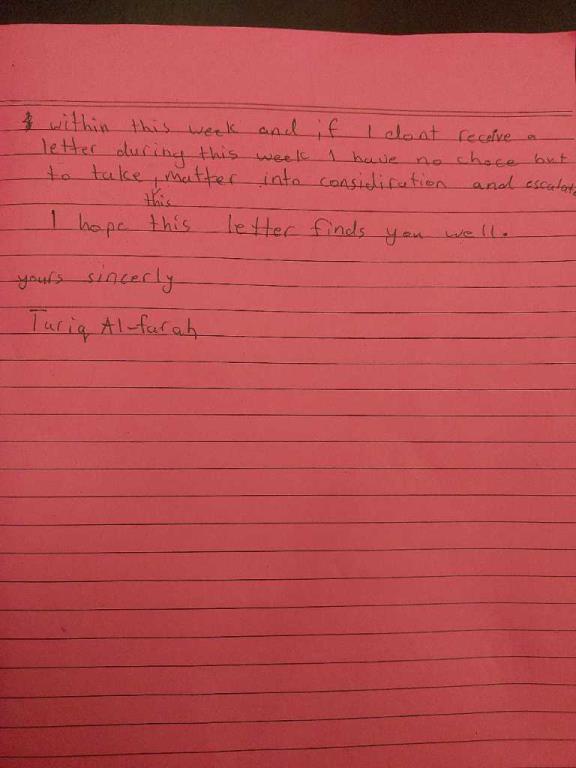 within this week and if I dont receive a
letter during this week I have no choce but
to take, matter into considiration and escalate
this
I hope this letter finds you well.
yours sincerly
Tariq Al-farah